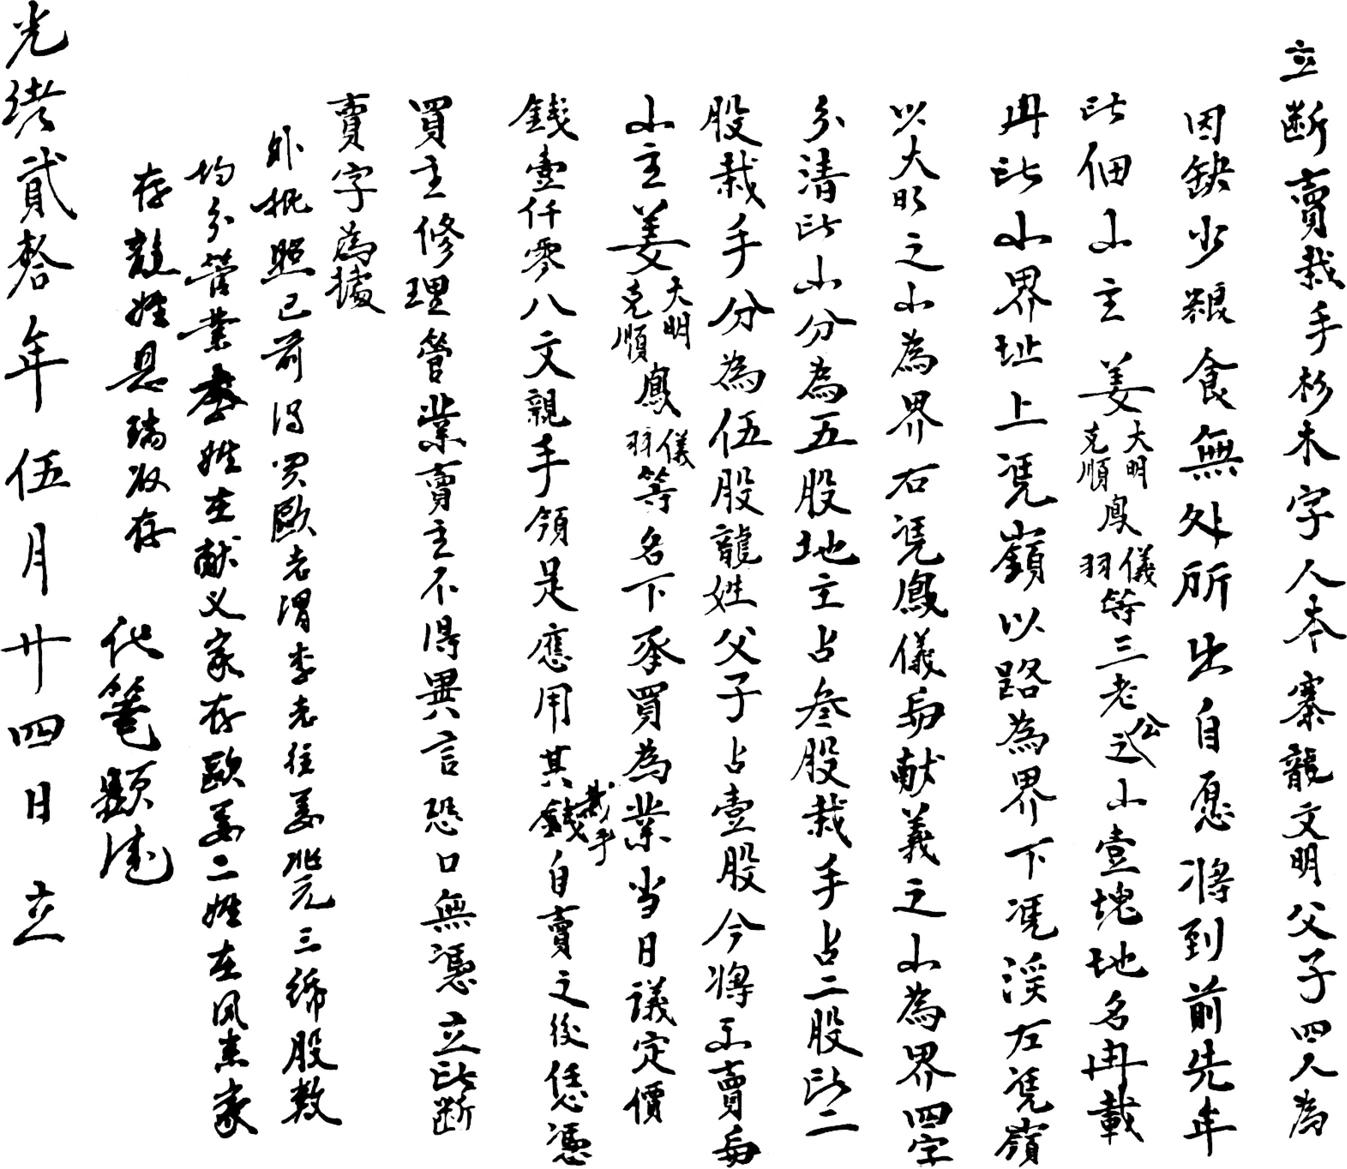 立断賣栽手杉木字人岑寨龍文明父子四人為
因缺少粮食無处所出自愿将到前先年
此佃山主姜大明克順鳳儀羽等三老公之山壹塊地名冉載
冉此山界址上凭嶺以路為界下凭溪左凭嶺
以大明之山為界右凭鳳儀与献義之山為界四字
分清此山分為五股地主占叁股栽手占二股此二
股栽手分為伍股龍姓父子占壹股今将出賣与
山主姜大明克順鳳儀羽等名下承買為業当日議定價
錢壹仟零八文親手領足應用其錢栽手自賣之後恁憑
買主修理管業賣主不得異言恐口無憑立此断
賣字為據
外批照已前得买歐老渭李老往姜兆元三紙股数
均分管業李姓在献义家存歐姜二姓在凤至家
存龍姓恩瑞收存
代筆顯清
光緒貳拾年伍月廿四日立